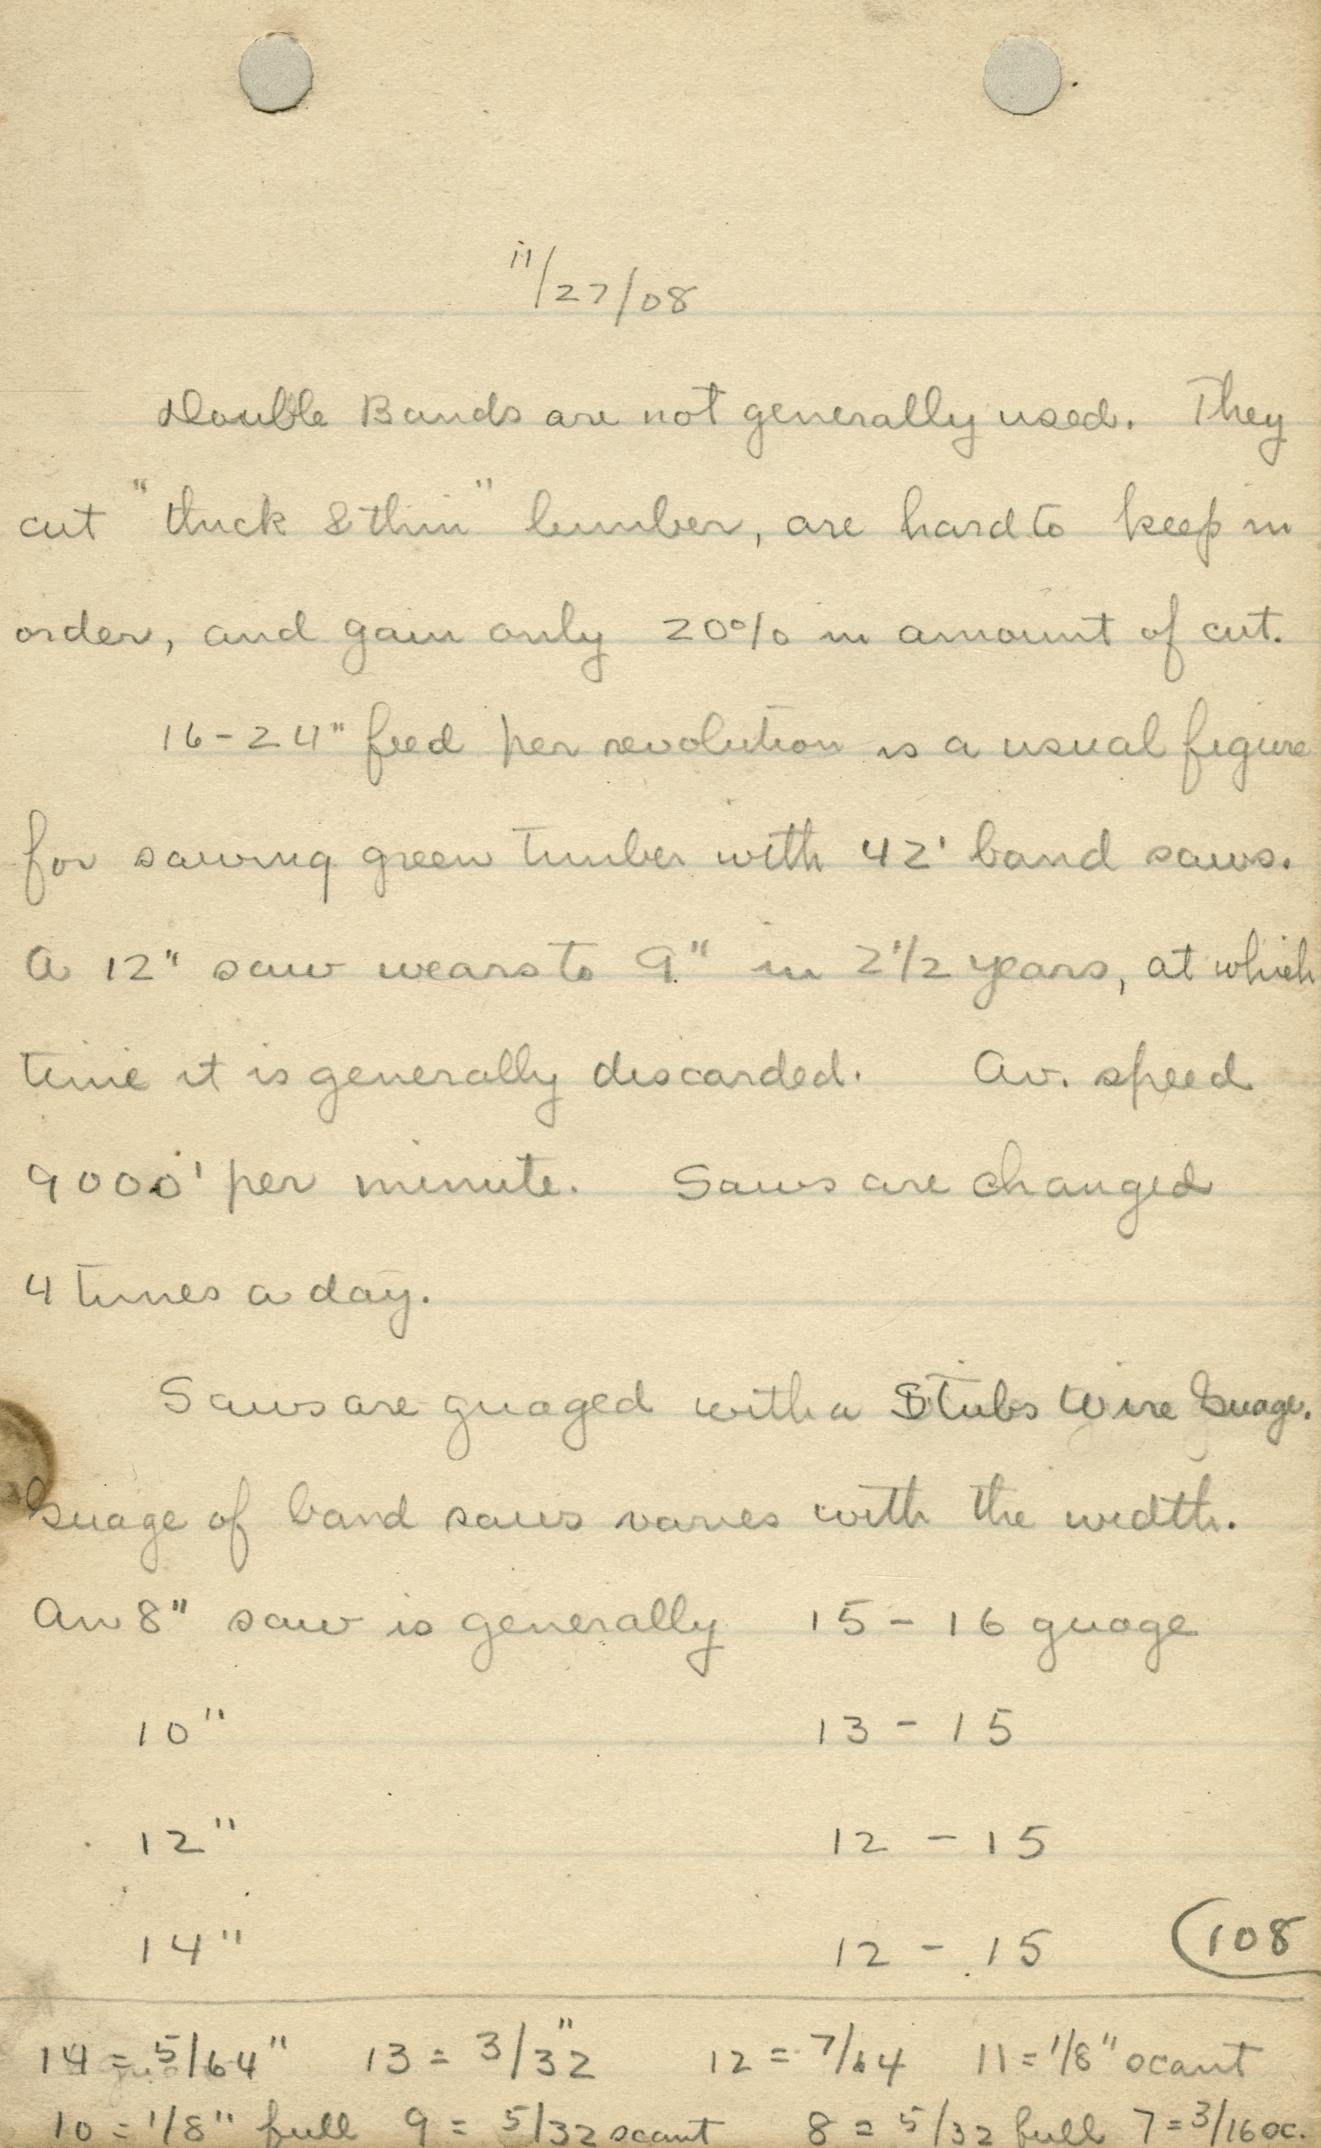 11/27/08
Double Bands are not generally used. They
cut "thick & thin" lumber, are hard to keep in
order, and gain only 20% in amount of cut.
16-24" feed per revolution is a usual figure
for sawing green timber with 42' band saws.
A 12" saw wears to 9" in 2 1/2 years, at which
time it is generally discarded. Av. speed
9000' per minute. Saws are changed
4 times a day.
Saws are guaged with a Stubs Wire Guage.
Guage of band saws varies with the width.
An 8" saw is generally 15 - 16 guage
10" 13 - 15
12" 12 - 15
14" 12 - 15 108
14 = 5/64" 13 = 3/32" 12 = 7/64 11 = 1/8" scant
10 = 1/8" full 9 = 5/32 scant 8 = 5/32 full 7 = 3/16 sc.